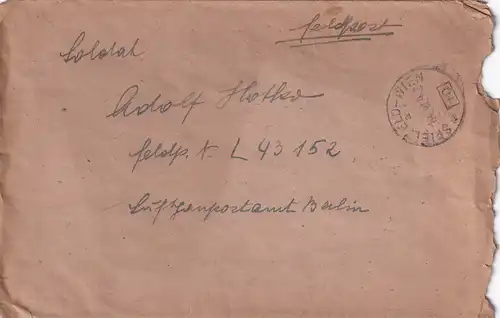 Feldpost
Soldat
Adolf Hotko
Feldp. N. L 43152
Luftgaupostamt Berlin
WIEN